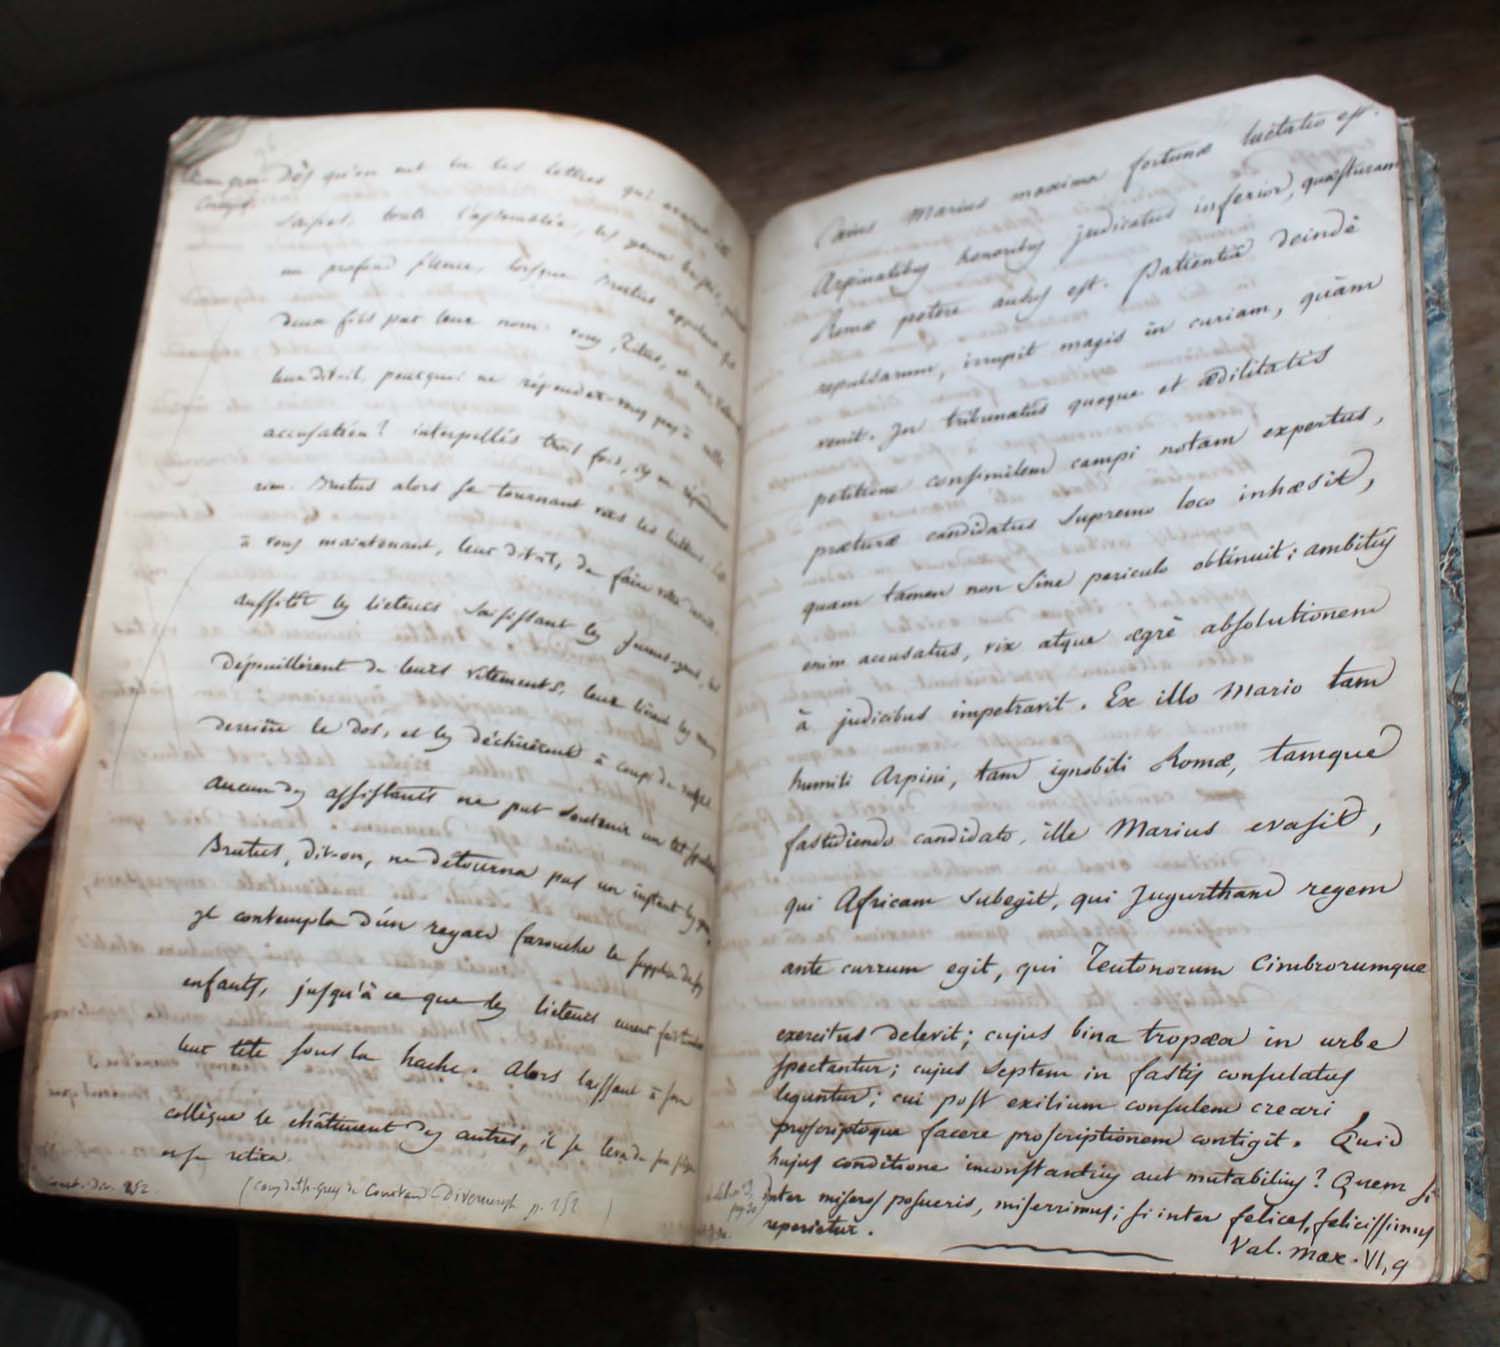 Dès qu'on eut lu les lettres qui avaient été
saisies, toute l'assemblée, les yeux baissés, gardait
un profond silence, lorsque Brutus appelant ses
deux fils par leur nom: vous, Titus, et vous
leur dit-il, pourquoi ne répondez-vous pas à cette
accusation? interpellés trois fois, ils ne répondirent
rien. Brutus alors se tournant vers les licteurs: c'est
à vous maintenant, leur dit-il, de faire votre
aussitôt les licteurs saisissant les jeunes-gens, les
dépouillèrent de leurs vêtements, leur lièrent les mains
derrière le dos, et les déchirèrent à coups de verges
aucun des assistants ne put soutenir un tel spectacle
Brutus, dit-on, ne détourna pas un instant les yeux,
il contempla d'un regard farouche le supplice de ses
enfants, jusqu'à ce que les licteurs eurent fait tomber
leur tête sous la hache. Alors laissant à son
collègue le châtiment des autres, il se leva de son siège
et se retira.
252
p. 252
Caius Marius maximæ fortunæ luctatio est.
Arpinatibus honoribus judicatus inferior, quæsturam
Romæ petere ausus est. Patientiâ deindè
repulsarum, irrupit magis in curiam, quàm
venit. In tribunatûs quoque et ædilitatis
petitione consimilem campi notam expertus,
præturæ candidatus supremo loco inhæsit,
quam tamen non sine periculo obtinuit: ambitûs
enim accusatus, vix atque ægrè absolutionem
à judicibus impetravit. Ex illo Mario tam
humili Arpini, tam ignobili Romæ, tamque
fastidiendo candidato, ille Marius evasit,
qui Africam subegit, qui Jugurtham regem
ante currum egit, qui Teutonorum Cimbrorumque
exercitus delevit; cujus bina tropæa in urbe
spectantur; cujus septem in fastis consulatus
leguntur; cui post exilium consulem creari
proscriptoque facere proscriptionem contigit. Quid
hujus conditione inconstantius aut mutabilius? Quem si
inter miseros posueris, miserrimus; si inter felices, felicissimus
reperietur.
Val. Max. VI, 9